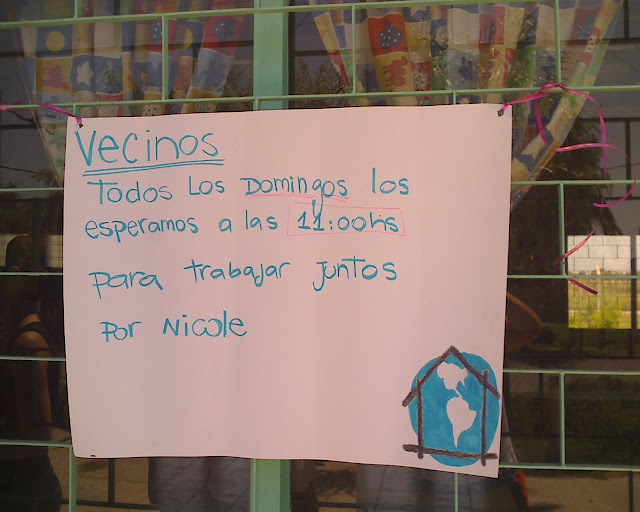 Vecinos
Todos Los Domingos los
esperamos a las 11:00hs
para trabajar juntos
por Nicole